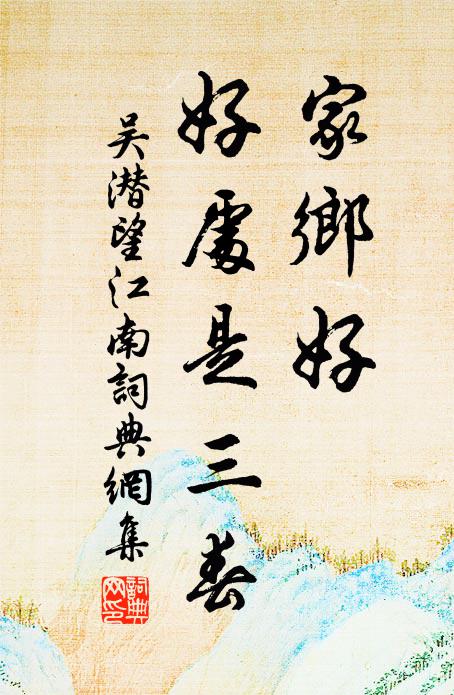 家鄉好
好處是三春
吴潜望江南詞典網集
詞典
网印